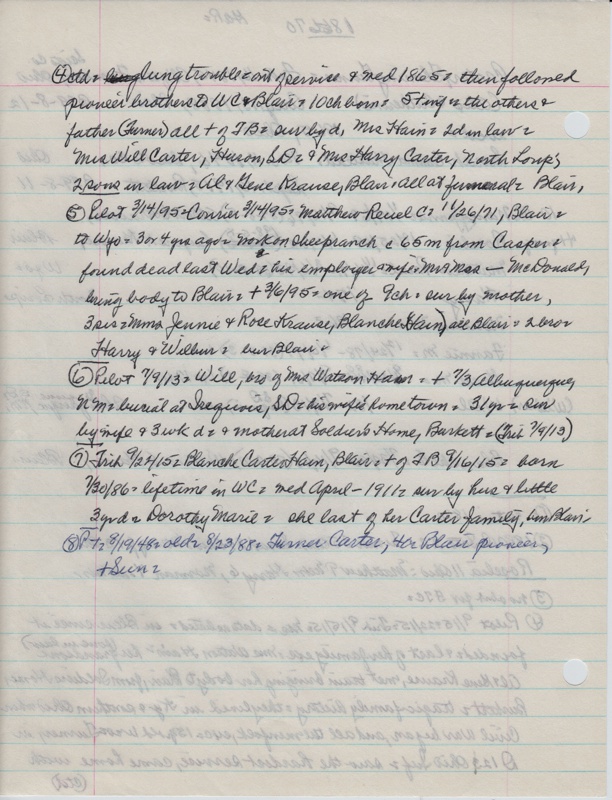 ④ctd = lung trouble = out of service & med 1865 = then followed
pioneer brothers to WC & Blair = 10 ch born = 5 + inf = the others &
father (Turner) all + of TB = sur by d, Mrs Hain = 2 d in law =
Mrs Will Carter, Huron, SD = & Mrs Harry Carter, North Loup;
2 sons in law = Al & Gene Krause, Blair = all at funeral = Blair,
⑤ Pilot 3/14/95 = Courier 3/14/95 = Matthew Reuel C = 11/26/71, Blair =
to Wyo = 3 or 4 yrs ago = work on sheep ranch c 65 m from Casper =
found dead last Wed = his employer & wife = Mr & Mrs — McDonald,
bring body to Blair = + 3/6/95 = one of 9 ch = sur by mother,
3 sis = Mmes Jennie & Rose Krause, Blanche (Hain) all Blair = 2 bro =
Harry & Wilbur = bur Blair =
⑥ Pilot 7/9/13 = Will, bro of Mrs Watson Hain = + 7/3, Albuquerque,
N M = burial at Iroquois, SD = his wife's home town = 31 yr = sur
by wife & 3 wk d = & mother at Soldier's Home, Burkett = (Trib 7/9/13)
⑦ Trib 9/24/15 = Blanche Carter Hain, Blair = + of TB 9/16/15 = born
7/30/86 = lifetime in WC = med April - 1911 = sur by hus & little
3 yr d = Dorothy Marie = she last of her Carter family, bur Blair
⑧ P + = 8/19/48 = old = 8/23/88 = Turner Carter, 4 Blair pioneer,
+ Sun =